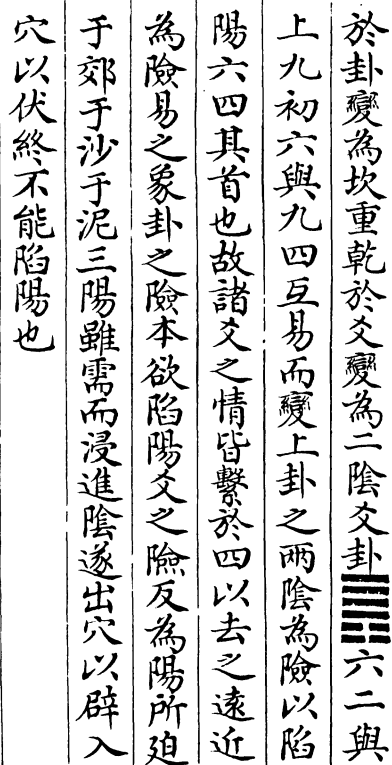 於卦變為坎重乾於爻變為二陰爻卦䷠六二與
上九初六與九四互易而變上卦之兩陰為險以陷
陽六四其首也故諸爻之情皆繫於四以去之遠近
為險易之象卦之險本欲陷陽爻之險反為陽所廹
于郊于沙于泥三陽雖需而浸進陰遂出穴以辟入
穴以伏終不能陷陽也